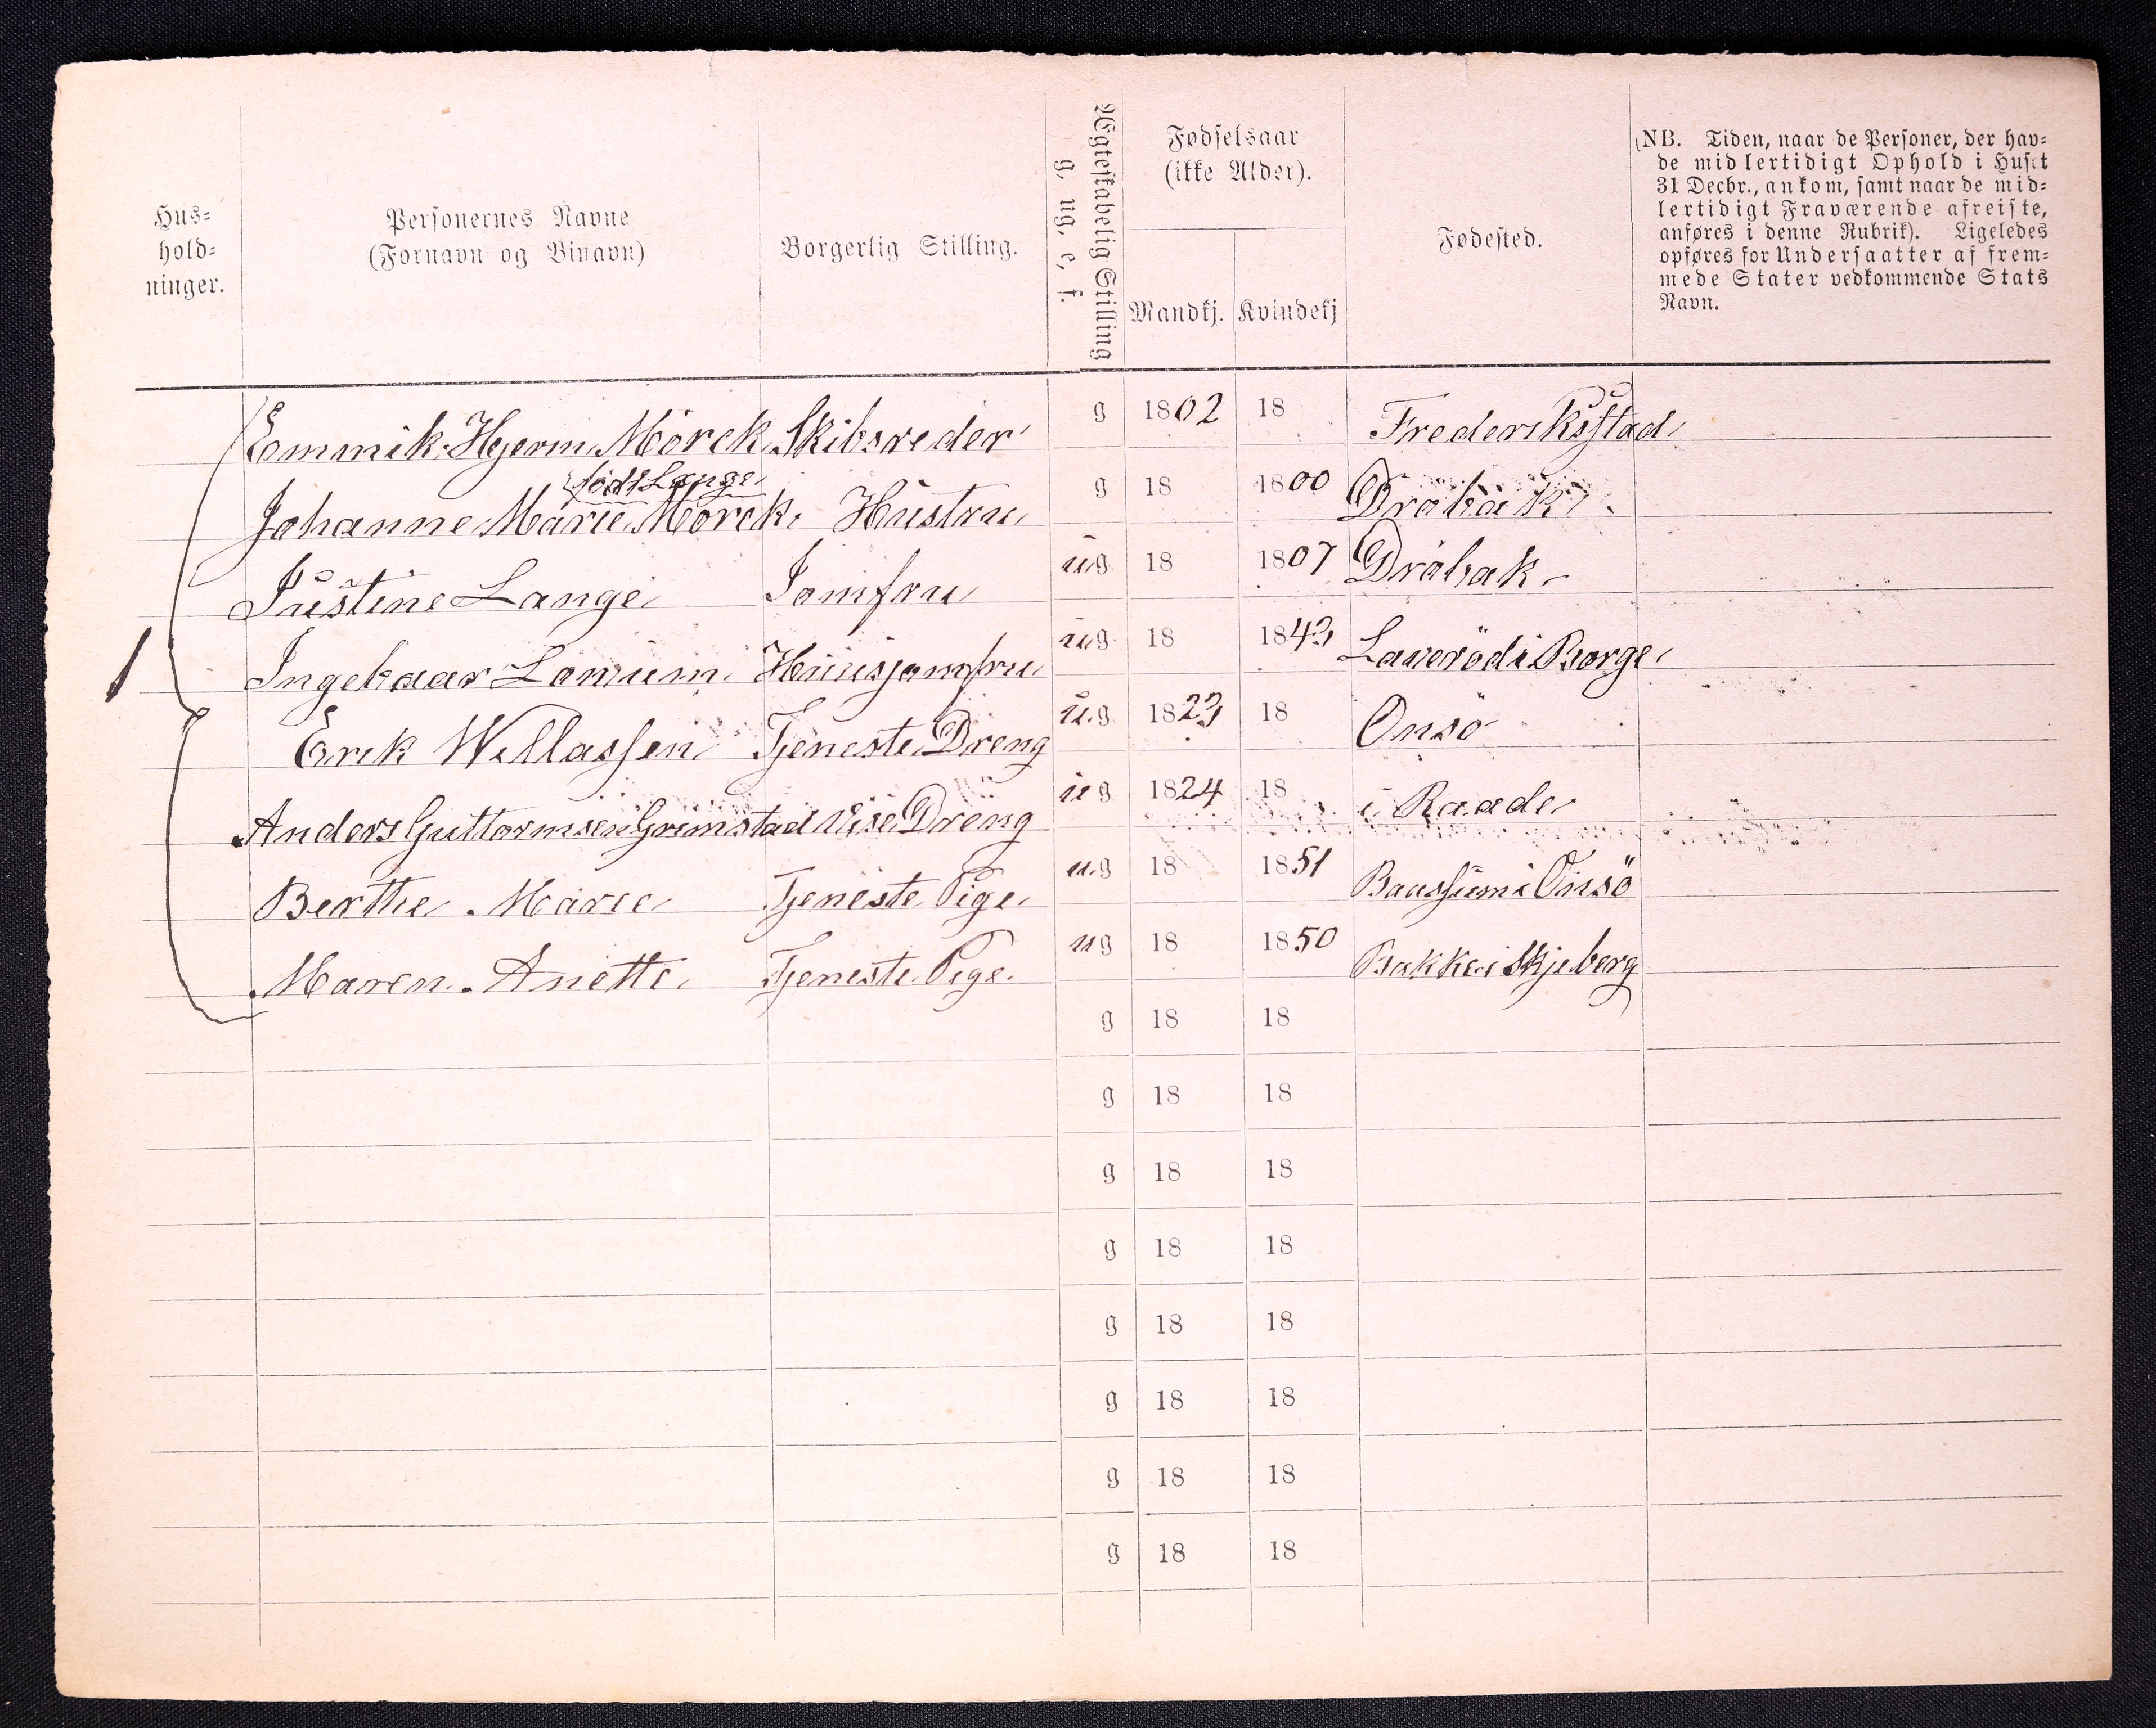 Hus-
hold-
ninger.
Personernes Navne
(Fornavn og Binavn)
Borgerlig Stilling.
Ægteskabelig Stilling
g, ug, e, f.
Fødselsaar
(ikke Alder).
Mandkj. Kvindekj
Fødested.
(NB. Tiden, naar de Personer, der hav-
de midlertidigt Ophold i Huset
31 Decbr., ankom, samt naar de mid-
lertidigt Fraværende afreiste,
anføres i denne Rubrik). Ligeledes
opføres for Undersaatter af frem-
mede Stater vedkommende Stats
Navn.
1
Emmik Hjerm Mörck Skibsreder g 1802 18 Frederiksstad
född Lange
Johanne Marie Mörck. Hustru g 18 1800 Dröbak
Justine Lange Jomfru ug 18 1807 Dröbak
Ingebaar Huusjomfru ug 18 1843 i Borge
Erik Willassen Tjeneste Dreng ug 1823 18 Onsö
Anders Guttormsen Grimstad Vise Dreng ug 1824 18 i Raade
Berthe Marie Tjeneste Pige ug 18 1851 i Onsö
Maren Anette Tjeneste Pige ug 18 1850 Bakke i Skjeberg
g 18 18
g 18 18
g 18 18
g 18 18
g 18 18
g 18 18
g 18 18
g 18 18